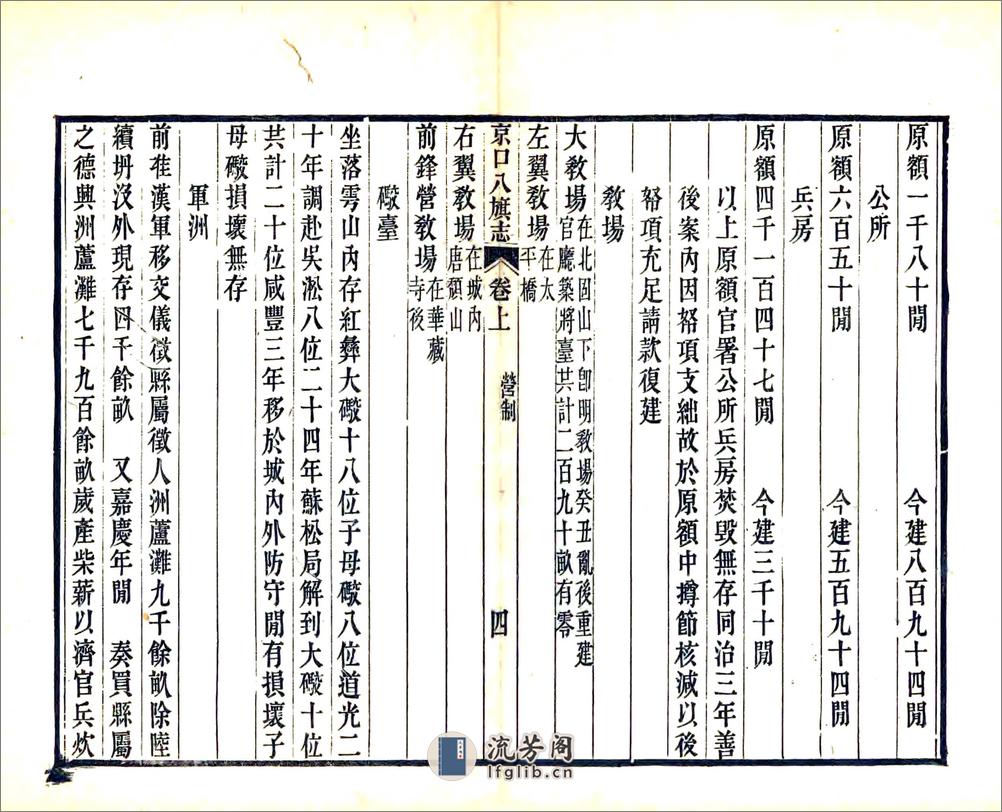 原額一千八十閒　今建八百九十四閒
公所
原額六百五十閒　今建五百九十四閒
兵房
原額四千一百四十七閒　今建三千十閒
以上原額官署公所兵房焚毀無存同治三年善
後案內因帑項支絀故於原額中撙節核減以後
帑項充足請款復建
教場
大教場在北固山下卽明教場癸丑亂後重建
官廳築將臺共計二百九十畝有零
左翼教場在太
平橋
京口八旗志
卷上
營制
四
右翼教場在城內
唐頹山
前鋒營教場在華藏
寺後
礮臺
坐落雩山內存紅彝大礮十八位子母礮八位道光二
十年調赴吳淞八位二十四年蘇松局解到大礮十位
共計二十位咸豐三年移於城內外防守閒有損壞子
母礮損壞無存
軍洲
前在漢軍移交儀徵縣屬徵人洲蘆灘九千餘畝除陸
續坍沒外現存四千餘畝　又嘉慶年閒　奏買縣屬
之德興洲蘆灘七千九百餘畝歲產柴薪以濟官兵炊
流芳阁
lfglib.cn